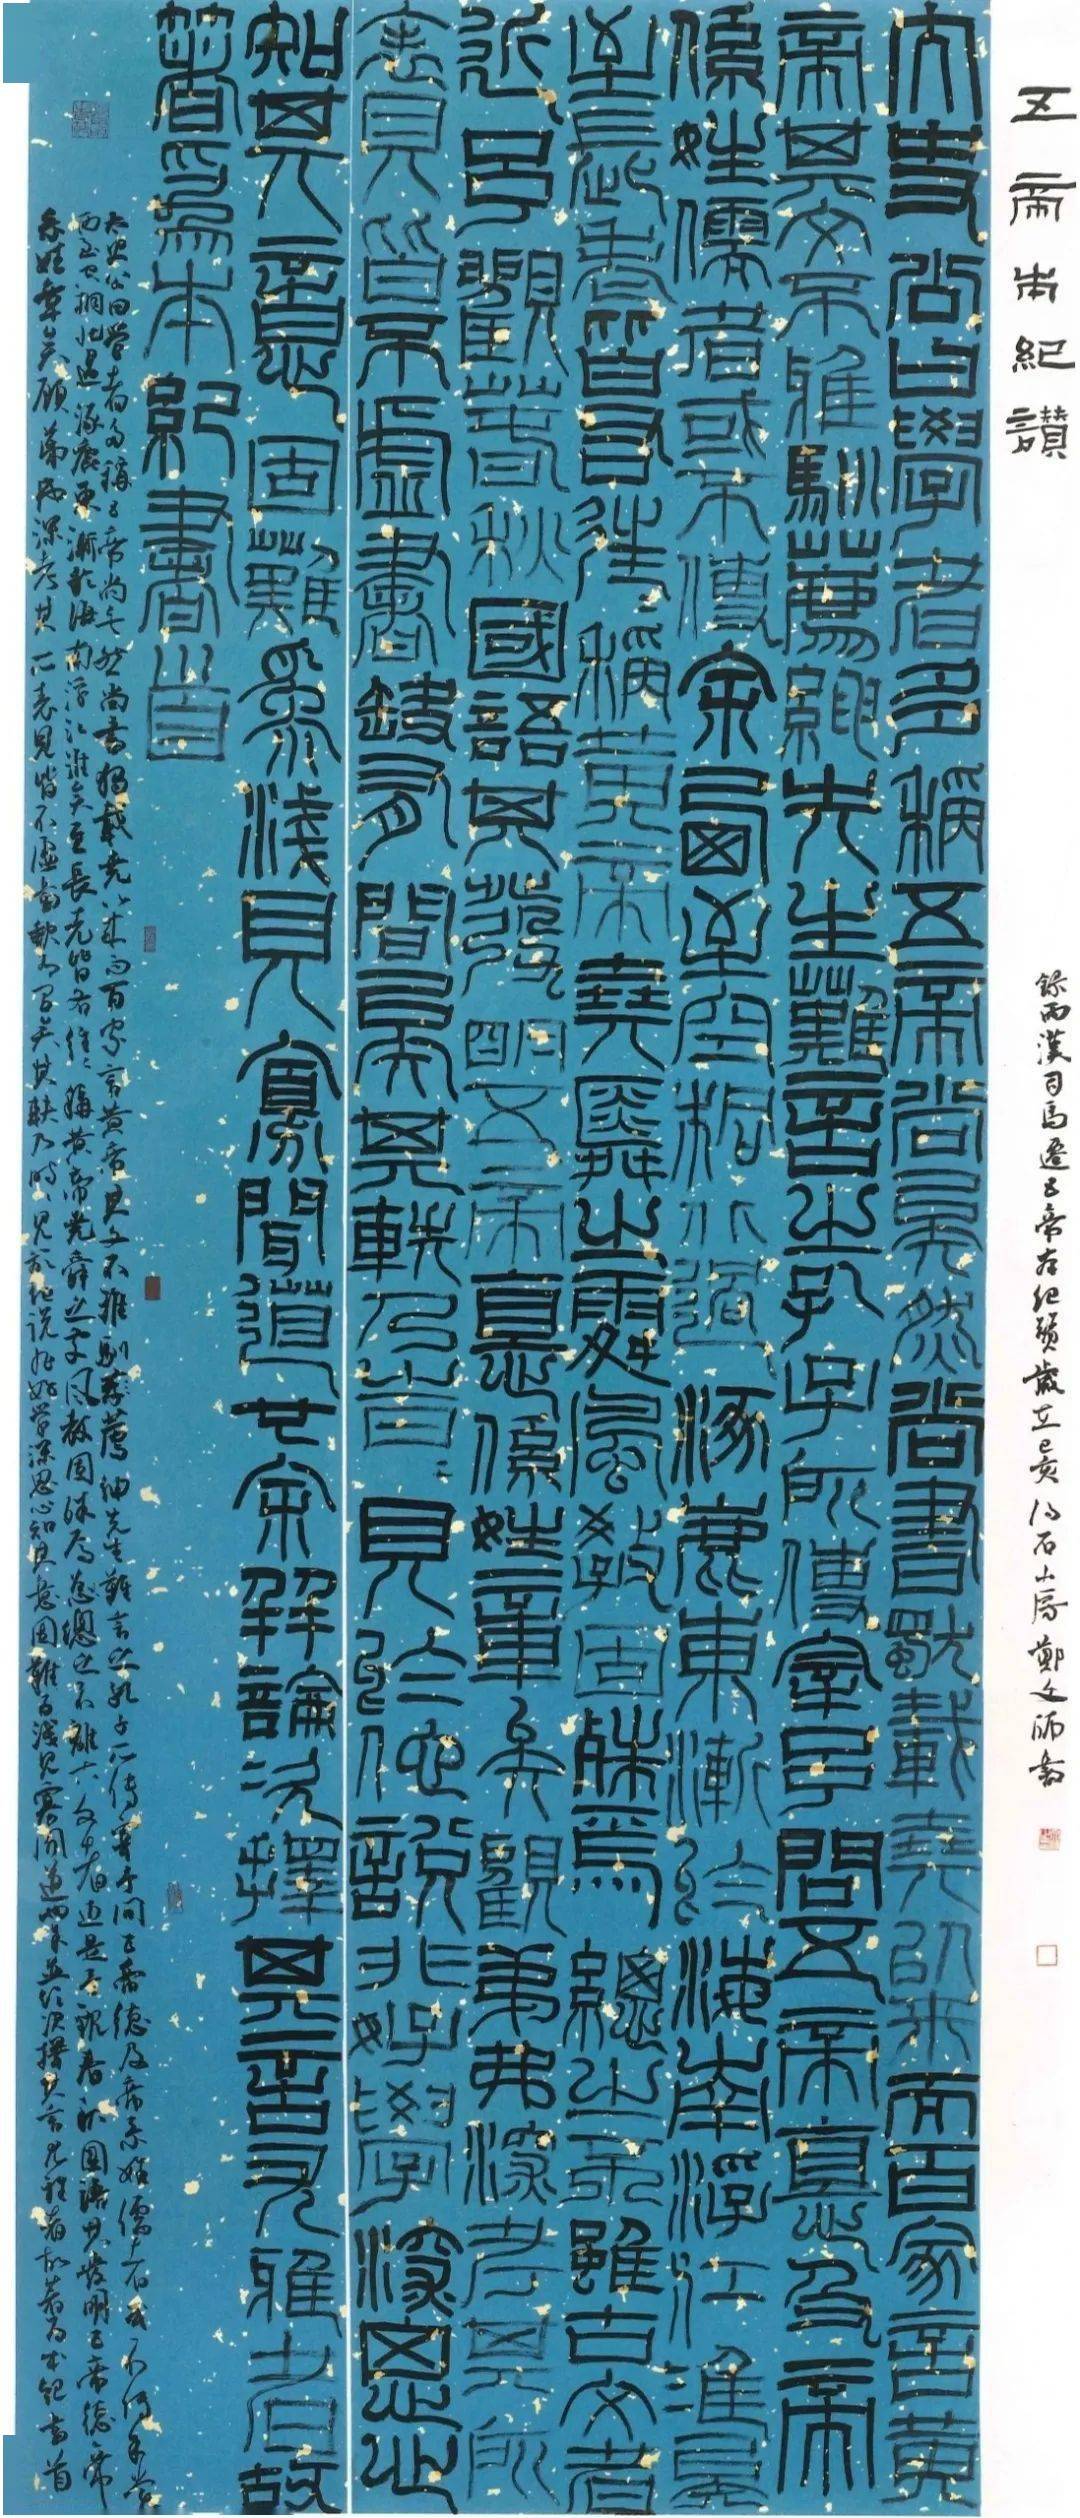 五帝本紀讚
錄西漢司馬遷五帝本紀贊歲在己亥 石山房鄭文師書
太史公曰學者多稱五帝尚矣然尚書獨載堯以來而百家言黃
帝其文不雅馴薦紳先生難言之孔子所傳宰予問五帝惪及帝
係姓儒者或不傳余西至空桐北過涿鹿東漸於海南浮江淮矣
至長老皆各往稱黃帝堯舜之處風教固殊焉總之不離古文者
近是予觀春秋國語其發明五帝惪係姓章矣觀弟弗深考其所
表見皆不虛書缺有間矣其軼乃時見於他說非好學深思心
知其意固難為淺見寡聞道也余并論次擇其言尤雅者故
著為本紀書首
太史公曰學者多稱五帝尚矣然尚書獨載堯以來而百家言黃帝其文不雅馴薦紳先生難言之孔子所傳宰予問五帝德及帝系姓儒者或不傳余嘗
西至空桐北過涿鹿東漸於海南浮江淮矣至長老皆各往往稱黃帝堯舜之處風教固殊焉總之不離古文者近是予觀春秋國語其發明五帝德帝
系姓章矣顧弟弗深考其所表見皆不虛書軼有間矣其軼乃時時見於他說非好學深思心知其意固難為淺見寡聞道也余并論次擇其言尤雅者故著為本紀書首